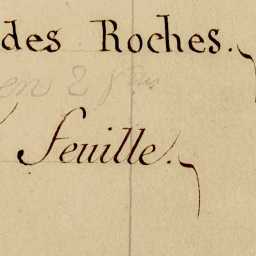 des Roches.
en 2 f
feuille.